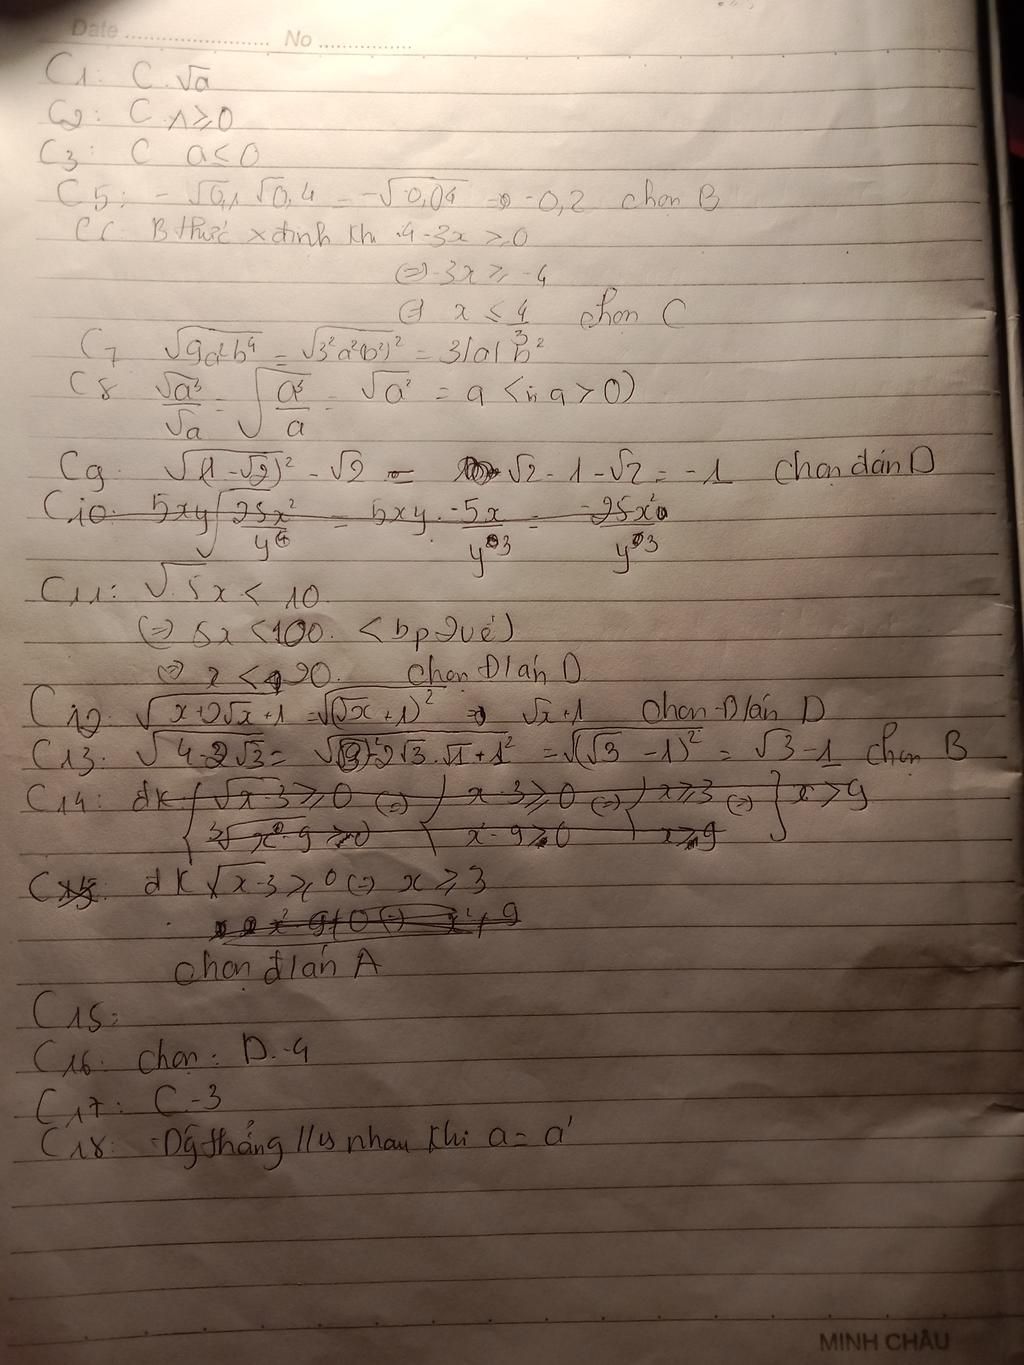 Date ........................ No ................
C1: C. √a
C2: C. 1 ≥ 0
C3: C a ≤ 0
C5: - √0,1 √0,4 = -√0,04 = -0,2 chọn B
C6 B thức x định khi 4-3x ≥ 0
(=) -3x ≥ -4
(=) x ≤ 4/3 chọn C
C7 √9a²b⁴ = √3²a²(b²)² = 3|a| b²
C8 √a³/√a = √(a³/a) = √a² = a (vì a > 0)
C9. √(1-√2)² - √2 = √2 - 1 - √2 = -1 Chọn đán D
C10. 5xy √(25x²/y⁶) = 5xy. -5x/y³ = -25x²/y³
C11: √5x < 10
(=) 5x < 100. (bp 2 vế)
(=) x < 20. Chọn Đ/án D
C12: √x+2√x+1 = √(√x+1)² = √x+1 Chọn Đ/án D
C13: √4-2√3 = √(√3)²-2√3.√1+1² = √(√3-1)² = √3-1 chọn B
C14: dk { √x-3 ≥ 0 (=) { x-3 ≥ 0 (=) { x ≥ 3 (=) } x > 9
x²-9 ≥ 0 x-9 ≥ 0 x ≥ 9
dk √x-3 ≥ 0 (=) x ≥ 3
Chọn đ/án A
C15:
C16: chọn: D. -4
C17: C. -3
C18: Dg thẳng // vs nhau khi a = a'
MINH CHÂU